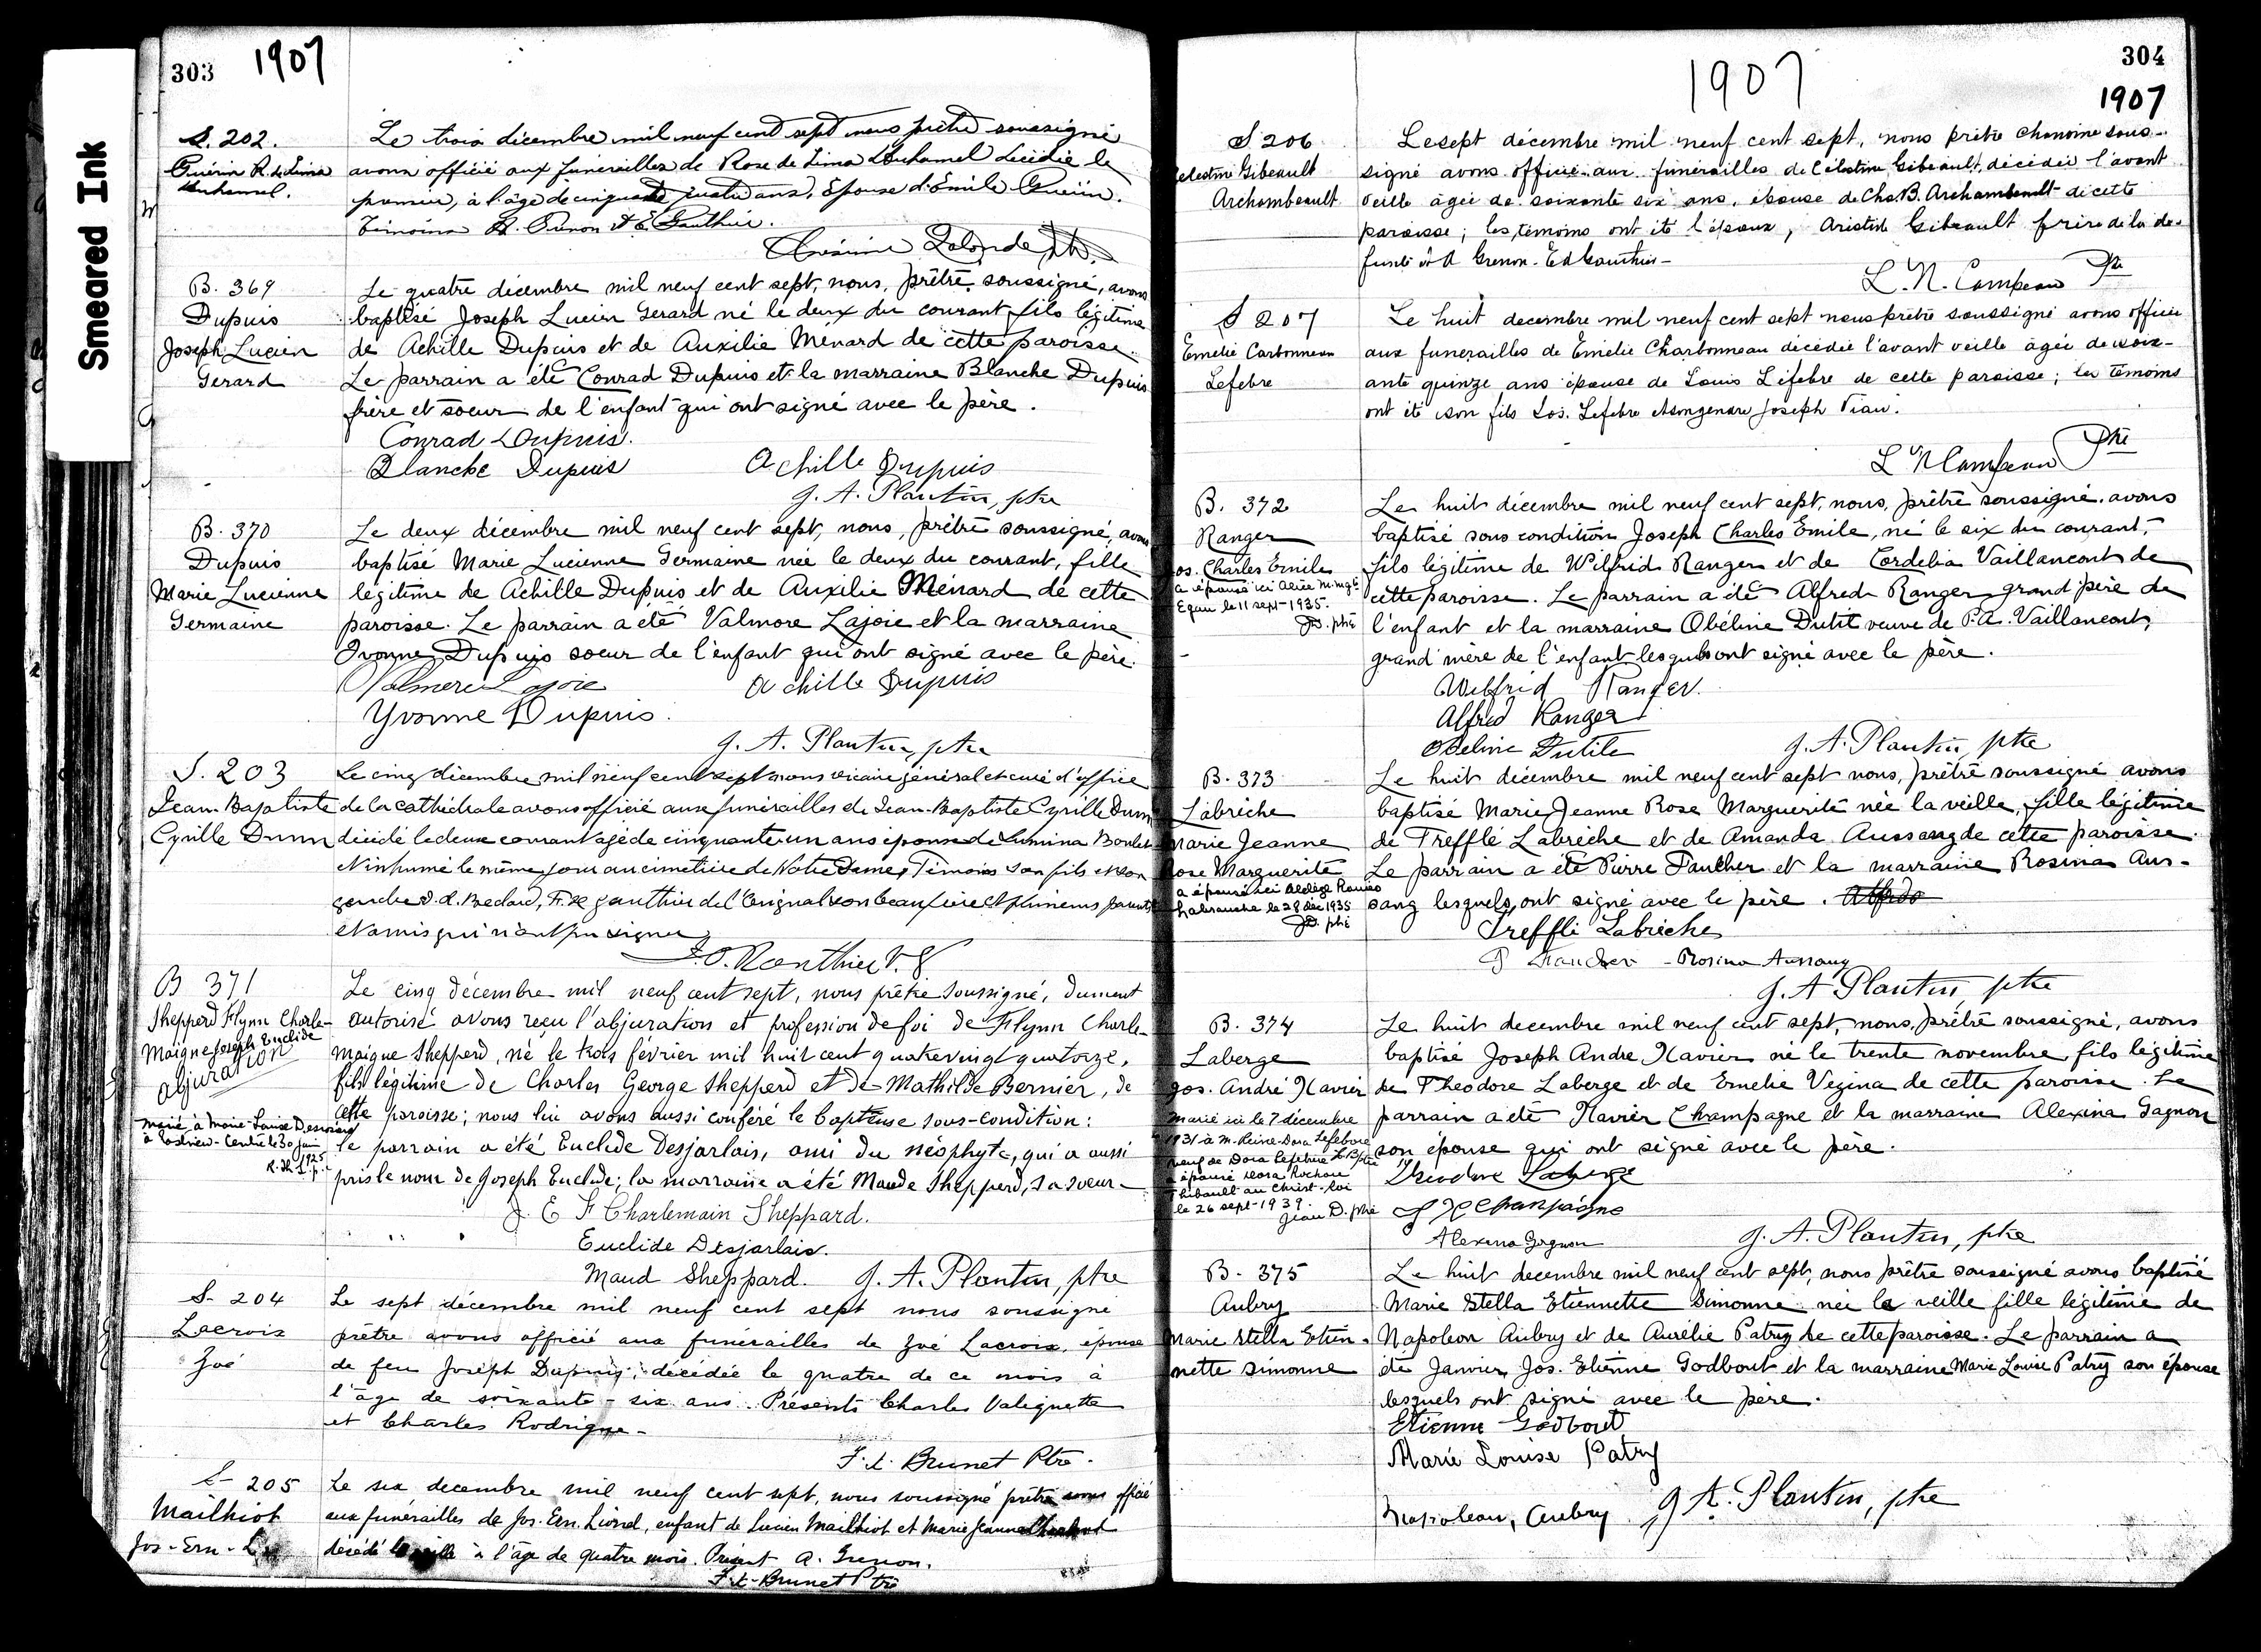 Smeared Ink
303 1907
S. 202.
Guérin R. de Lima
Duhamel.
Le trois décembre mil neuf cent sept nous prêtre soussigné
avons officié aux funérailles de Rose de Lima Duhamel décédée le
premier, à l'âge de cinquante quatre ans, Epouse d'Emile Guérin.
Témoins A. Grenon & E. Gauthier.
Onésime Lalonde Ptre.
B. 369
Dupuis
Joseph Lucien
Gerard
Le quatre décembre mil neuf cent sept, nous, prêtre soussigné, avons
baptisé Joseph Lucien Gerard né le deux du courant, fils légitime
de Achille Dupuis et de Auxilie Ménard de cette paroisse.
Le parrain a été Conrad Dupuis et la marraine Blanche Dupuis
frère et soeur de l'enfant qui ont signé avec le père.
Conrad Dupuis.
Blanche Dupuis Achille Dupuis
J. A. Plantin, ptre
B. 370
Dupuis
Marie Lucienne
Germaine
Le deux décembre mil neuf cent sept, nous, prêtre soussigné, avons
baptisé Marie Lucienne Germaine née le deux du courant, fille
légitime de Achille Dupuis et de Auxilie Ménard de cette
paroisse. Le parrain a été Valmore Lajoie et la marraine
Yvonne Dupuis soeur de l'enfant qui ont signé avec le père.
Valmore Lajoie Achille Dupuis
Yvonne Dupuis.
J. A. Plantin, ptre
S. 203
Jean-Baptiste
Cyrille Dunn
Le cinq décembre mil neuf cent sept nous vicaire général et curé d'office
de la cathédrale avons officié aux funérailles de Jean-Baptiste Cyrille Dunn
décédé le deux courant agé de cinquante-un ans époux de Lumina Boulet
et inhumé le même jour au cimetière de Notre Dame. Témoins son fils et son
gendre Bedard, F. X. Gauthier son beau frère et plusieurs parents
et amis qui n'ont pu signer
J. O. Routhier V. G
B 371
Shepperd Flynn Charle-
Maigne Joseph Euclide
abjuration
marié à Marie-Louise Desrosiers
le 30 juin
1925
Le cinq décembre mil neuf cent sept, nous prêtre soussigné, dument
autorisé avons reçu l'abjuration et profession de foi de Flynn Charle-
maigne Shepperd, né le trois février mil huit cent quatrevingt quatorze,
fils légitime de Charles George Shepperd et de Mathilde Bernier, de
cette paroisse; nous lui avons aussi conféré le baptême sous-condition:
le parrain a été Euclide Desjarlais, ami du néophyte, qui a aussi
pris le nom de Joseph Euclide; la marraine a été Maude Shepperd, sa soeur-
J. E F Charlemain Sheppard.
Euclide Desjarlais.
Maud Sheppard. J. A. Plantin, ptre
S- 204
Lacroix
Zoé
Le sept décembre mil neuf cent sept nous soussigné
prêtre avons officié aux funérailles de Zoé Lacroix, épouse
de feu Joseph Dupuis; décédée le quatre de ce mois à
l'âge de soixante-six ans. Présents Charles Valiquette
et Charles Rodrigue-
F. X. Brunet Ptre.
S- 205
Mailhiot
Jos-Ern-
Le six decembre mil neuf cent sept, nous soussigné prêtre avons officié
aux funérailles de Jos. Ern. Lionel, enfant de Lucien Mailhiot et Marie Jeanne
décédé la veille à l'âge de quatre mois. Présent A. Grenon.
F. X. Brunet Ptre
304
1907
1907
S 206
Celestine Gibeault
Archambeault
Le sept décembre mil neuf cent sept, nous prêtre chanoine sous-
signé avons officié aux funérailles de Célestine Gibeault, décédée l'avant
veille âgée de soixante six ans, épouse de Chs. B. Archambeault de cette
paroisse; les témoins ont été l'époux, Aristide Gibeault frère de la dé-
funte et A Grenon. Ed Gauthier-
L. N. Campeau Ptre
S 207
Emélie Carbonneau
Lefebre
Le huit decembre mil neuf cent sept nous prêtre soussigné avons officié
aux funerailles de Emélie Charbonneau décédée l'avant veille âgée de soix-
ante quinze ans épouse de Louis Léfebre de cette paroisse; les témoins
ont été son fils Los. Lefebre et son gendre Joseph Viau.
L N Campeau Ptre
B. 372
Ranger
Jos. Charles Emile
a épousé ici Alice M. Mgt
Egan le 11 sept-1935.
JD. ptre
Le huit décembre mil neuf cent sept, nous, prêtre soussigné, avons
baptisé sous condition Joseph Charles Emile, né le six du courant,
fils légitime de Wilfrid Ranger et de Cordelia Vaillancourt de
cette paroisse. Le parrain a été Alfred Ranger grand père de
l'enfant et la marraine Obéline Dutil veuve de P.A. Vaillancourt,
grand'mère de l'enfant lesquels ont signé avec le père.
Wilfrid Ranger.
Alfred Ranger
Obeline Dutile J. A. Plantin, ptre
B. 373
Labrèche
Marie Jeanne
Rose Marguerite
a épousé ici Aldège Romeo
Labranche le 28 déc 1935
JD. ptre
Le huit décembre mil neuf cent sept nous, prêtre soussigné avons
baptisé Marie Jeanne Rose Marguerite née la veille, fille légitime
de Trefflé Labrèche et de Amanda Aussang de cette paroisse.
Le parrain a été Pierre Faucher et la marraine Rosina Aus-
sang lesquels ont signé avec le père.
Treffli Labrèche
P Faucher - Rosina Aussang
J. A Plantin, ptre
B. 374
Laberge
Jos. André Xavier
marié ici le 7 décembre
1931 à M-Reine-Dora Lefebvre
veuf de Dora Lefebvre
a épousé Dora
Thibault au Christ-Roi
le 26 sept-1939.
Jean D. ptre
Le huit decembre mil neuf cent sept, nous, prêtre soussigné, avons
baptisé Joseph Andre Xavier né le trente novembre fils légitime
de Theodore Laberge et de Emelie Vegina de cette paroisse. Le
parrain a été Xavier Champagne et la marraine Alexina Gagnon
son épouse qui ont signé avec le père.
Theodore Laberge
F X Champagne
Alexina Gagnon J. A. Plantin, ptre
B- 375
Aubry
Marie Stella Etien-
nette Simonne
Le huit decembre mil neuf cent sept, nous prêtre soussigné avons baptisé
Marie Stella Etiennette Simonne née la veille fille légitime de
Napoleon Aubry et de Aurélie Patry de cette paroisse. Le parrain a
été Janvier Jos. Etienne Godbout et la marraine Marie Louise Patry son épouse
lesquels ont signé avec le père.
Etienne Godbout
Marie Louise Patry
Napoleon, Aubry J. A. Plantin, ptre